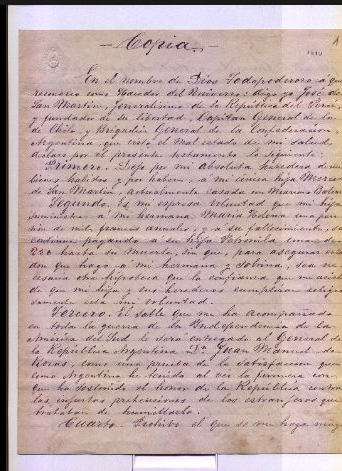 — Copia. —
En el nombre de Dios Todopoderoso a quien
reconozco como Hacedor del Universo: Digo yo José de
San Martin, Jeneralisimo de la República del Perú,
y fundador de su libertad, Capitan General de la
de Chile, y Brigadier General de la Confederacion
Argentina, que visto el mal estado de mi salud,
declaro por el presente testamento lo siguiente:
Primero. Dejo por mi absoluta heredera de mis
bienes habidos y por haber, a mi única hija Mercedes
de San Martin, actualmente casada con Mariano Balcarce
Segundo. Es mi espresa voluntad que mi hija
suministre á mi hermana Maria Elena una pen
sion de mil francos anuales, y a su fallecimiento, se
continue pagando a su hija Petronila una de
250 hasta su muerte, sin que, para asegurar este
don que hago á mi hermana y sobrina, sea ne
cesaria otra hipoteca que la confianza que me asiste
de que mi hija y sus herederos cumplirán religio
samente esta mi voluntad.
Tercero. El sable que me ha acompañado
en toda la guerra de la Independencia de la
America del Sud, le será entregado al General de
la República Argentina Dn Juan Manuel de
Rosas, como una prueba de la satisfaccion que
como Argentino he tenido al ver la firmeza con
que ha sostenido el honor de la República contra
las injustas pretenciones de los estranjeros que
trataban de humillarla.
Cuarto. Prohibo el que se me haga ningun